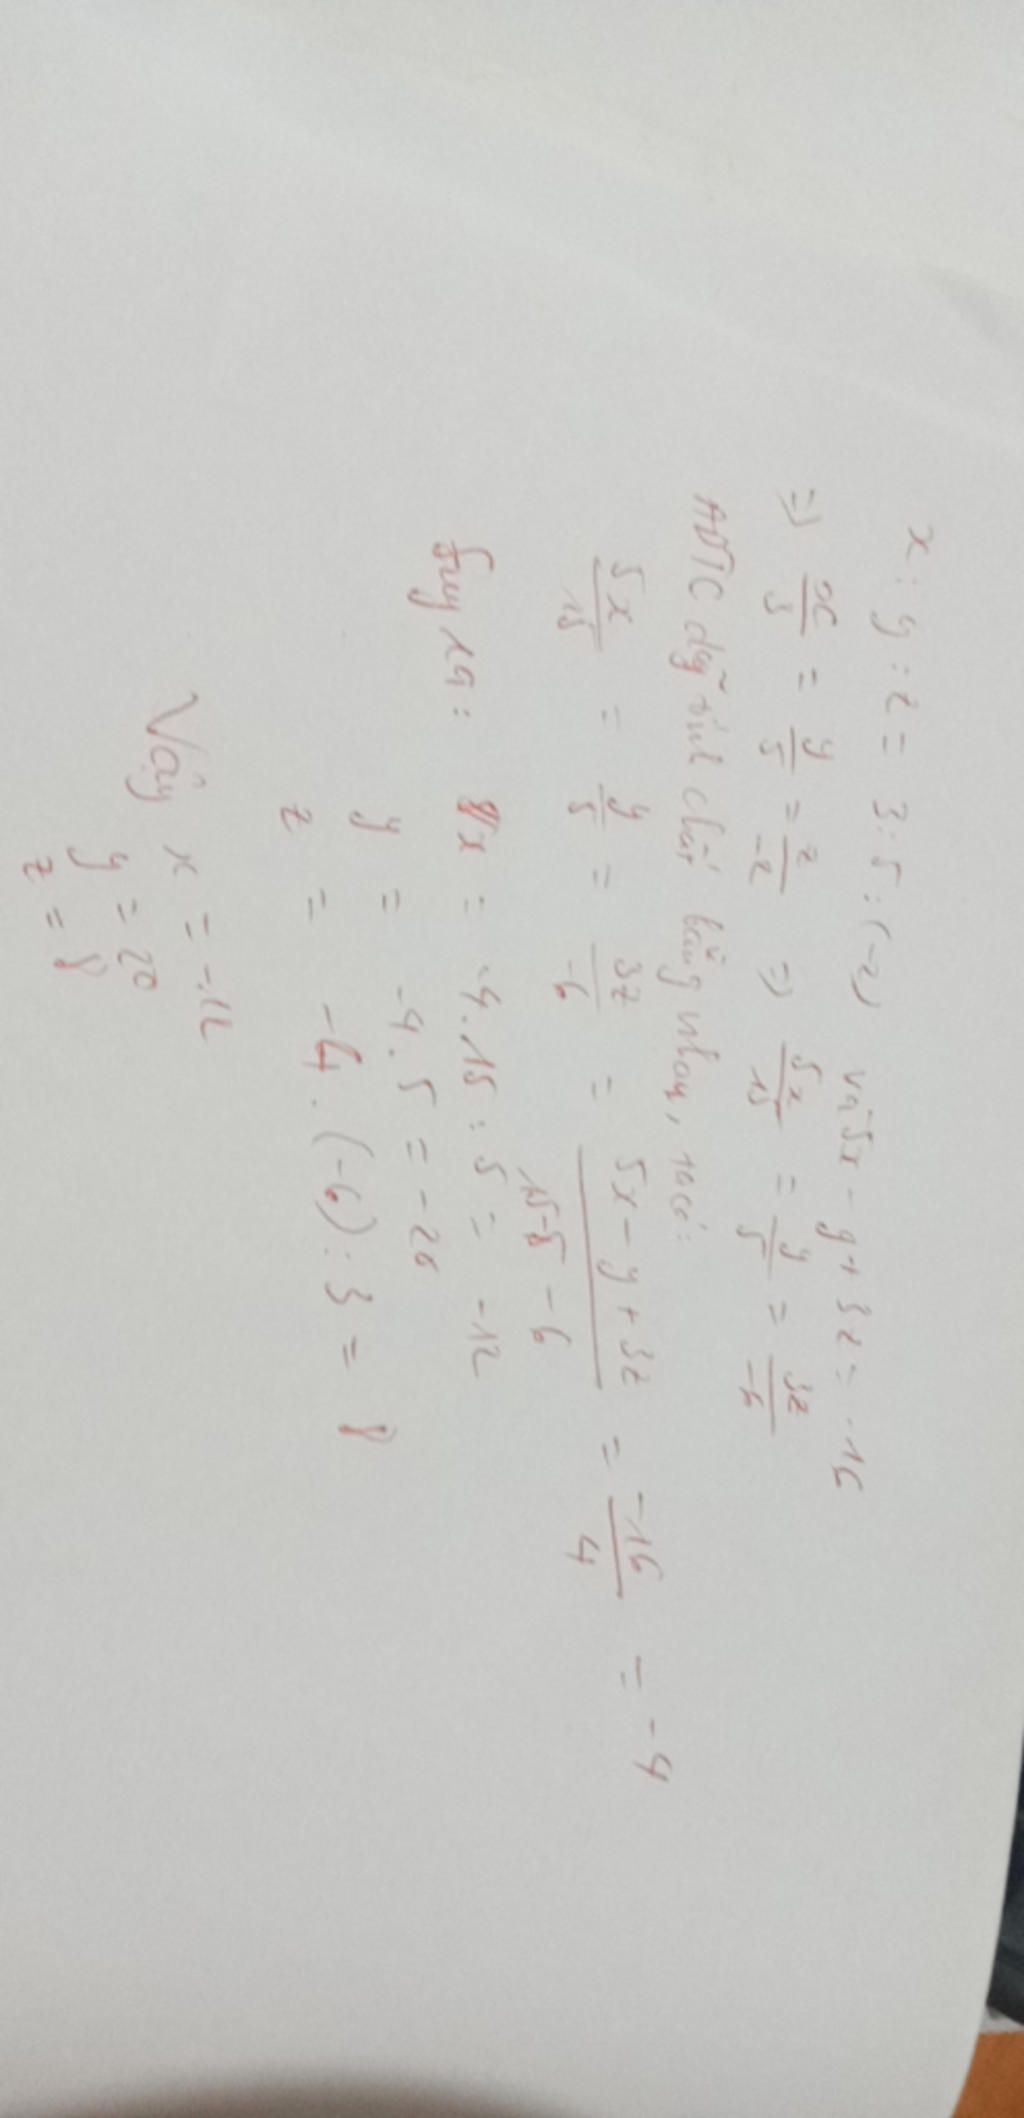 x : y : z = 3 : 5 : (-2) và 5x - y + 3z = -16
=> x/3 = y/5 = z/-2 => 5x/15 = y/5 = 3z/-6
ADTC dãy tính chất bằng nhau, ta có:
5x/15 = y/5 = 3z/-6 = (5x - y + 3z)/(15-5-6) = -16/4 = -4
Suy ra: x = -4.15:5 = -12
y = -4.5 = -20
z = -4.(-6):3 = 8
Vậy x = -12
y = 20
z = 8